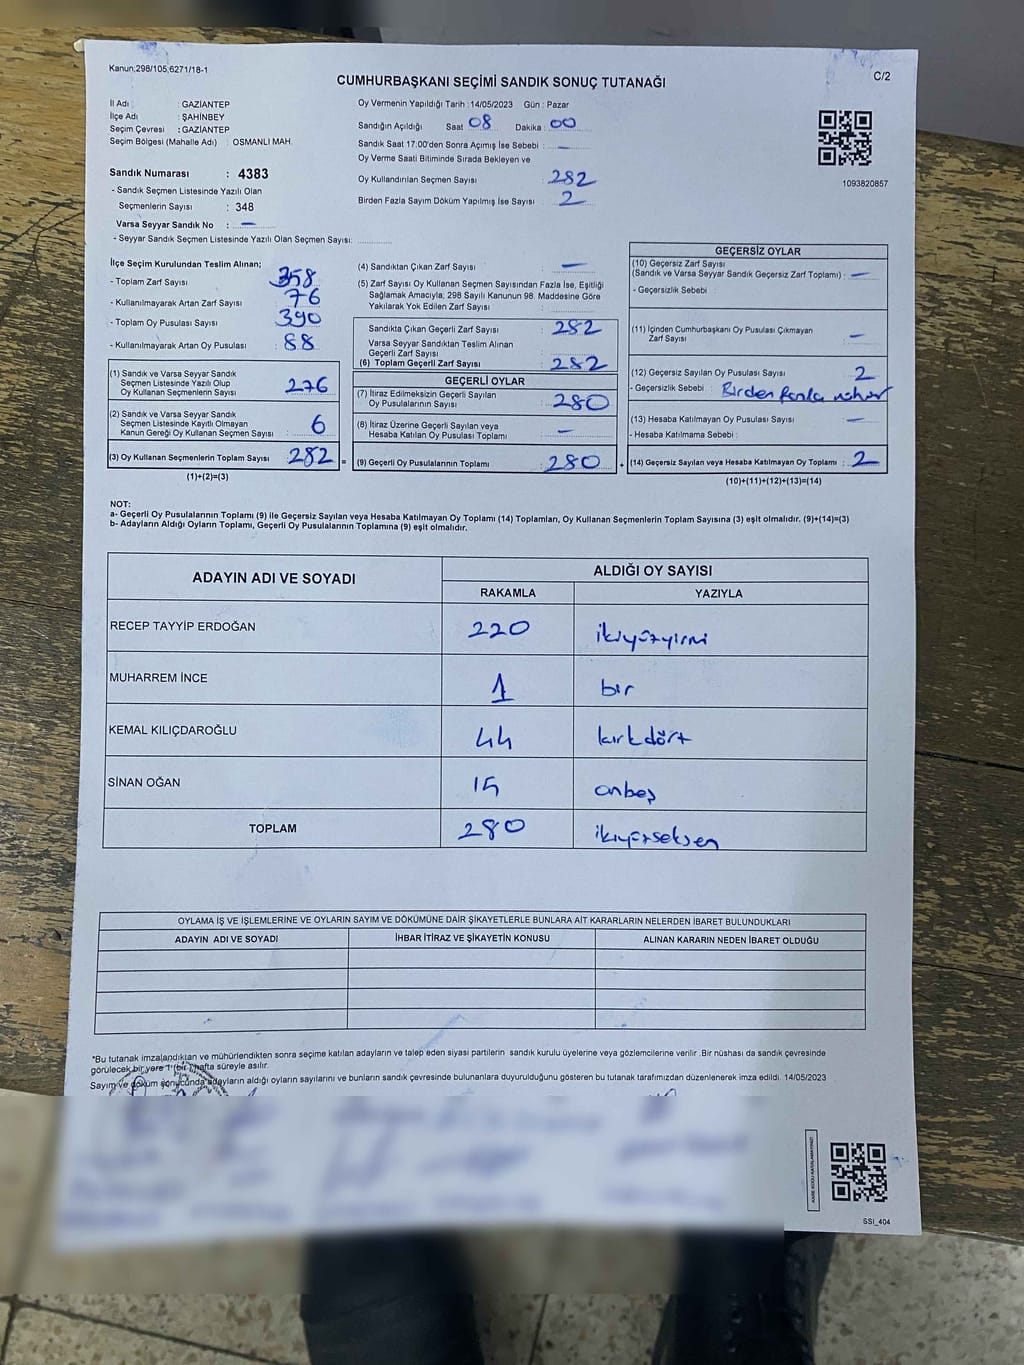 Kanun:298/105,6271/18-1
CUMHURBAŞKANI SEÇİMİ SANDIK SONUÇ TUTANAĞI
C/2
İl Adı : GAZİANTEP
İlçe Adı : ŞAHİNBEY
Seçim Çevresi : GAZİANTEP
Seçim Bölgesi (Mahalle Adı) : OSMANLI MAH.
Sandık Numarası : 4383
- Sandık Seçmen Listesinde Yazılı Olan
Seçmenlerin Sayısı : 348
Varsa Seyyar Sandık No : —
- Seyyar Sandık Seçmen Listesinde Yazılı Olan Seçmen Sayısı:
Oy Vermenin Yapıldığı Tarih :14/05/2023 Gün : Pazar
Sandığın Açıldığı Saat : 08 Dakika : 00
Sandık Saat 17:00'den Sonra Açımış İse Sebebi : —
Oy Verme Saati Bitiminde Sırada Bekleyen ve
Oy Kullandırılan Seçmen Sayısı : 282
Birden Fazla Sayım Döküm Yapılmış İse Sayısı : 2
1093820857
İlçe Seçim Kurulundan Teslim Alınan;
- Toplam Zarf Sayısı : 358
- Kullanılmayarak Artan Zarf Sayısı : 76
- Toplam Oy Pusulası Sayısı : 390
- Kullanılmayarak Artan Oy Pusulası : 88
(1) Sandık ve Varsa Seyyar Sandık
Seçmen Listesinde Yazılı Olup
Oy Kullanan Seçmenlerin Sayısı : 276
(2) Sandık ve Varsa Seyyar Sandık
Seçmen Listesinde Kayıtlı Olmayan
Kanun Gereği Oy Kullanan Seçmen Sayısı : 6
(3) Oy Kullanan Seçmenlerin Toplam Sayısı : 282 =
(1)+(2)=(3)
(4) Sandıktan Çıkan Zarf Sayısı : —
(5) Zarf Sayısı Oy Kullanan Seçmen Sayısından Fazla İse, Eşitliği
Sağlamak Amacıyla; 298 Sayılı Kanunun 98. Maddesine Göre
Yakılarak Yok Edilen Zarf Sayısı :
Sandıkta Çıkan Geçerli Zarf Sayısı : 282
Varsa Seyyar Sandıktan Teslim Alınan
Geçerli Zarf Sayısı :
(6) Toplam Geçerli Zarf Sayısı : 282
GEÇERLİ OYLAR
(7) İtiraz Edilmeksizin Geçerli Sayılan
Oy Pusulalarının Sayısı : 280
(8) İtiraz Üzerine Geçerli Sayılan veya
Hesaba Katılan Oy Pusulası Toplamı : —
(9) Geçerli Oy Pusulalarının Toplamı : 280 +
GEÇERSİZ OYLAR
(10) Geçersiz Zarf Sayısı
(Sandık ve Varsa Seyyar Sandık Geçersiz Zarf Toplamı) : —
- Geçersizlik Sebebi :
(11) İçinden Cumhurbaşkanı Oy Pusulası Çıkmayan
Zarf Sayısı : —
(12) Geçersiz Sayılan Oy Pusulası Sayısı : 2
- Geçersizlik Sebebi : Birden fazla mühür
(13) Hesaba Katılmayan Oy Pusulası Sayısı : —
- Hesaba Katılmama Sebebi :
(14) Geçersiz Sayılan veya Hesaba Katılmayan Oy Toplamı : 2
(10)+(11)+(12)+(13)=(14)
NOT:
a- Geçerli Oy Pusulalarının Toplamı (9) ile Geçersiz Sayılan veya Hesaba Katılmayan Oy Toplamı (14) Toplamları, Oy Kullanan Seçmenlerin Toplam Sayısına (3) eşit olmalıdır. (9)+(14)=(3)
b- Adayların Aldığı Oyların Toplamı, Geçerli Oy Pusulalarının Toplamına (9) eşit olmalıdır.
ADAYIN ADI VE SOYADI
ALDIĞI OY SAYISI
RAKAMLA YAZIYLA
RECEP TAYYİP ERDOĞAN 220 ikiyüzyirmi
MUHARREM İNCE 1 bir
KEMAL KILIÇDAROĞLU 44 kırkdört
SİNAN OĞAN 15 onbeş
TOPLAM 280 ikiyüzseksen
OYLAMA İŞ VE İŞLEMLERİNE VE OYLARIN SAYIM VE DÖKÜMÜNE DAİR ŞİKAYETLERLE BUNLARA AİT KARARLARIN NELERDEN İBARET BULUNDUKLARI
ADAYIN ADI VE SOYADI İHBAR İTİRAZ VE ŞİKAYETİN KONUSU ALINAN KARARIN NEDEN İBARET OLDUĞU
*Bu tutanak imzalandıktan ve mühürlendikten sonra seçime katılan adayların ve talep eden siyasi partilerin sandık kurulu üyelerine veya gözlemcilerine verilir .Bir nüshası da sandık çevresinde
görülecek bir yere 1 (bir) hafta süreyle asılır.
Sayım ve döküm sonucunda adayların aldığı oyların sayılarını ve bunların sandık çevresinde bulunanlara duyurulduğunu gösteren bu tutanak tarafımızdan düzenlenerek imza edildi. 14/05/2023
SSI_404